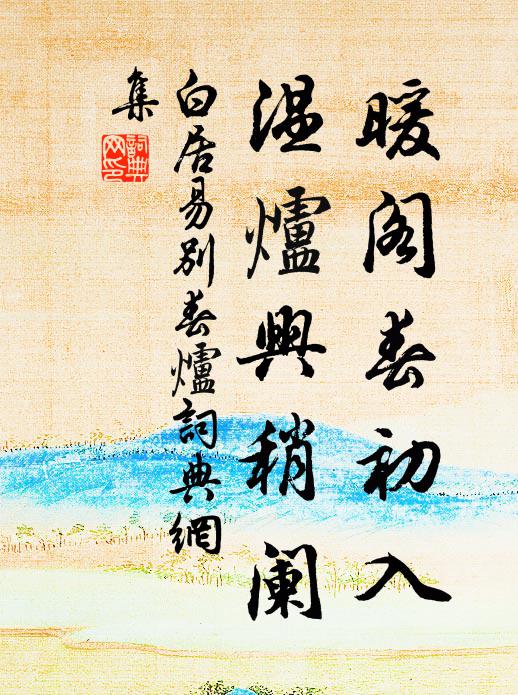 暖阁春初入
温爐興稍阑
白居易别春爐詞典網
集
詞典
网印